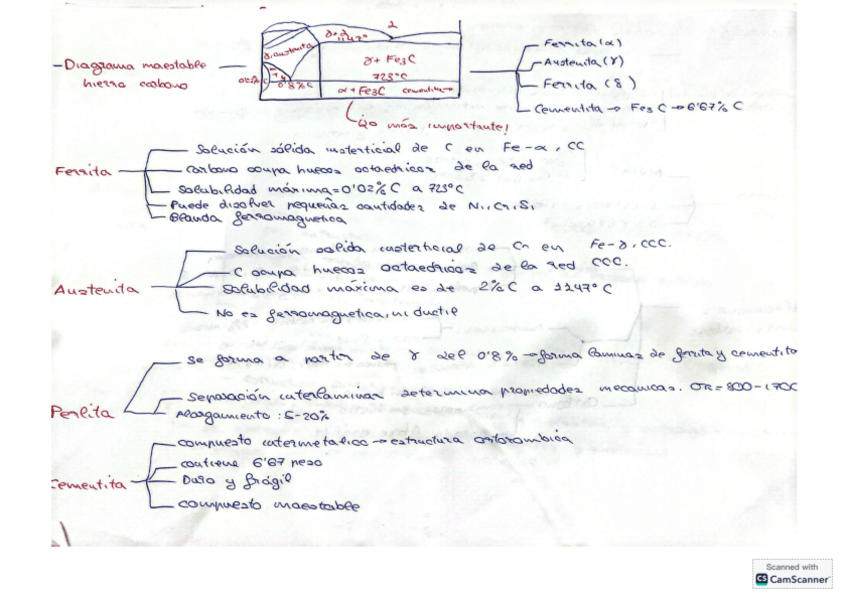 2
γ+L
1147°
γ austenita
γ+Fe3C
723°C
α+Fe3C cementita
0'8%C
-Diagrama maestable
hierro carbono
Ferrita (α)
Austenita (γ)
Ferrita (δ)
Cementita → Fe3C → 6'67% C
¡Lo más importante!
Ferrita
Solución sólida insterticial de C en Fe-α, CC
Carbono ocupa huecos octaedricos de la red
Solubilidad máxima=0'02%C a 723°C
Puede disolver pequeñas cantidades de Ni, Cr, Si
Blanda ferromagnetica
Austenita
Solución solida insterticial de Cn en Fe-γ, CCC.
C ocupa huecos octaedricos de la red CCC.
Solubilidad máxima es de 2%C a 1147°C
No es ferromagnetica, ni ductil
Perlita
Se forma a partir de γ del 0'8% → forma laminas de ferrita y cementita
Separación interlaminar determina propiedades mecanicas. σR=800-1700
Alargamiento: 5-20%
Cementita
compuesto intermetalico → estructura ortorombica
contiene 6'67 peso
Duro y frágil
compuesto maestable
Scanned with
CS CamScanner